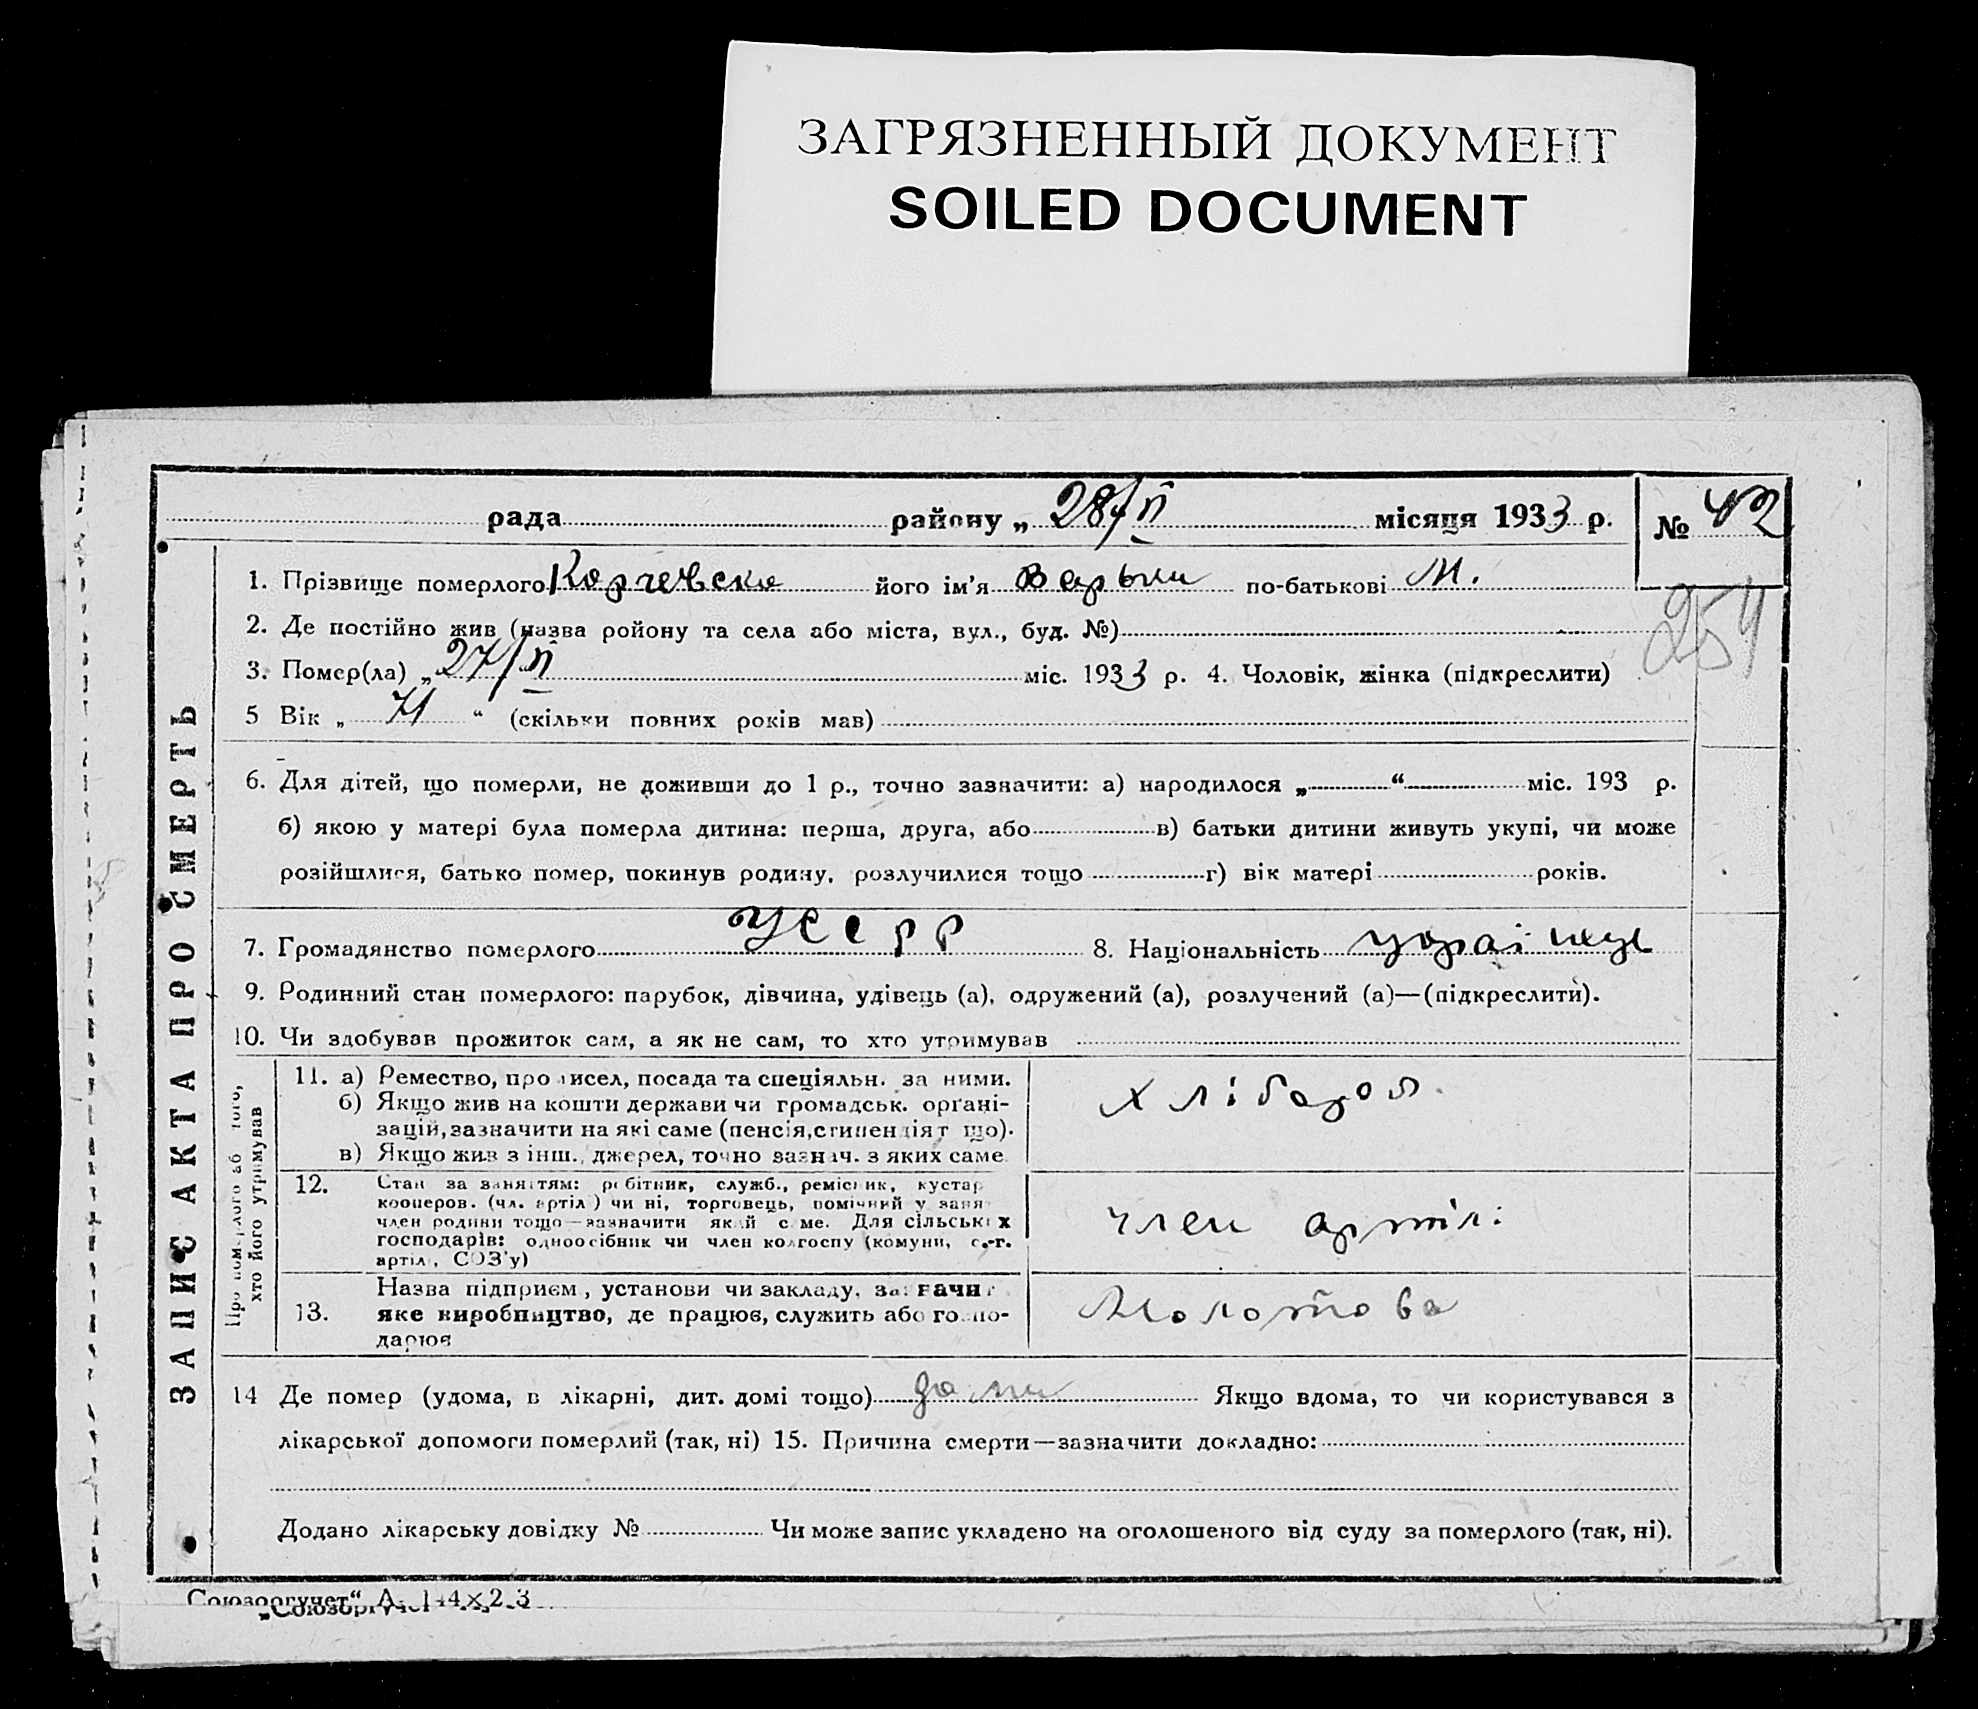 ЗАГРЯЗНЕННЫЙ ДОКУМЕНТ
SOILED DOCUMENT
рада району „ 28/II місяця 1933 р. № 42
254
1. Прізвище померлого його ім'я по-батькові М.
2. Де постійно жив (назва ройону та села або міста, вул., буд. №)
3. Помер(ла) „ 27/II міс. 1933 р. 4. Чоловік, жінка (підкреслити)
5 Вік „ 71 “ (скільки повних років мав)
6. Для дітей, що померли, не доживши до 1 р., точно зазначити: а) народилося „ “ міс. 193 р.
б) якою у матері була померла дитина: перша, друга, або в) батьки дитини живуть укупі, чи може
розійшлися, батько помер, покинув родину, розлучилися тощо г) вік матері років.
7. Громадянство померлого УССРР 8. Національність
9. Родинний стан померлого: парубок, дівчина, удівець (а), одружений (а), розлучений (а)—(підкреслити).
10. Чи здобував прожиток сам, а як не сам, то хто утримував
Про померлого аб того,
хто його утримував
11. а) Ремество, промисел, посада та спеціяльн. за ними.
б) Якщо жив на кошти держави чи громадськ. орґані-
зацій, зазначити на які саме (пенсія, стипендіят що).
в) Якщо жив з інш. джерел, точно зазнач. з яких саме
хлібороб.
12. Стан за заняттям: робітник, служб., ремісник, кустар
кооперов. (чл. артілі) чи ні, торговець, помічний у заня
член родини тощо—зазначити який саме. Для сільських
господарів: одноосібник чи член колгоспу (комуни, с.-г.
артілі, СОЗ'у)
член артілі
13. Назва підприєм, установи чи закладу, зазначи
яке виробництво, де працює, служить або госпо-
дарює
Молотова
14 Де помер (удома, в лікарні, дит. домі тощо) дома Якщо вдома, то чи користувався з
лікарської допомоги померлий (так, ні) 15. Причина смерти—зазначити докладно:
Додано лікарську довідку № Чи може запис укладено на оголошеного від суду за померлого (так, ні).
ЗАПИС АКТА ПРО СМЕРТЬ
Союзоргучет“ А. 144×2 3
„Союзоргучет